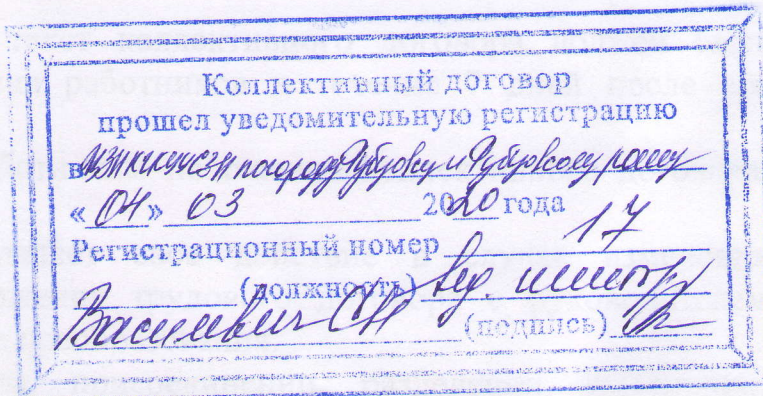 Коллективный договор
прошел уведомительную регистрацию
в по городу Рубцовску и Рубцовскому району
«04» 03 2020 года
Регистрационный номер 17
(должность) вед. инспектор
Василевич СН (подпись)